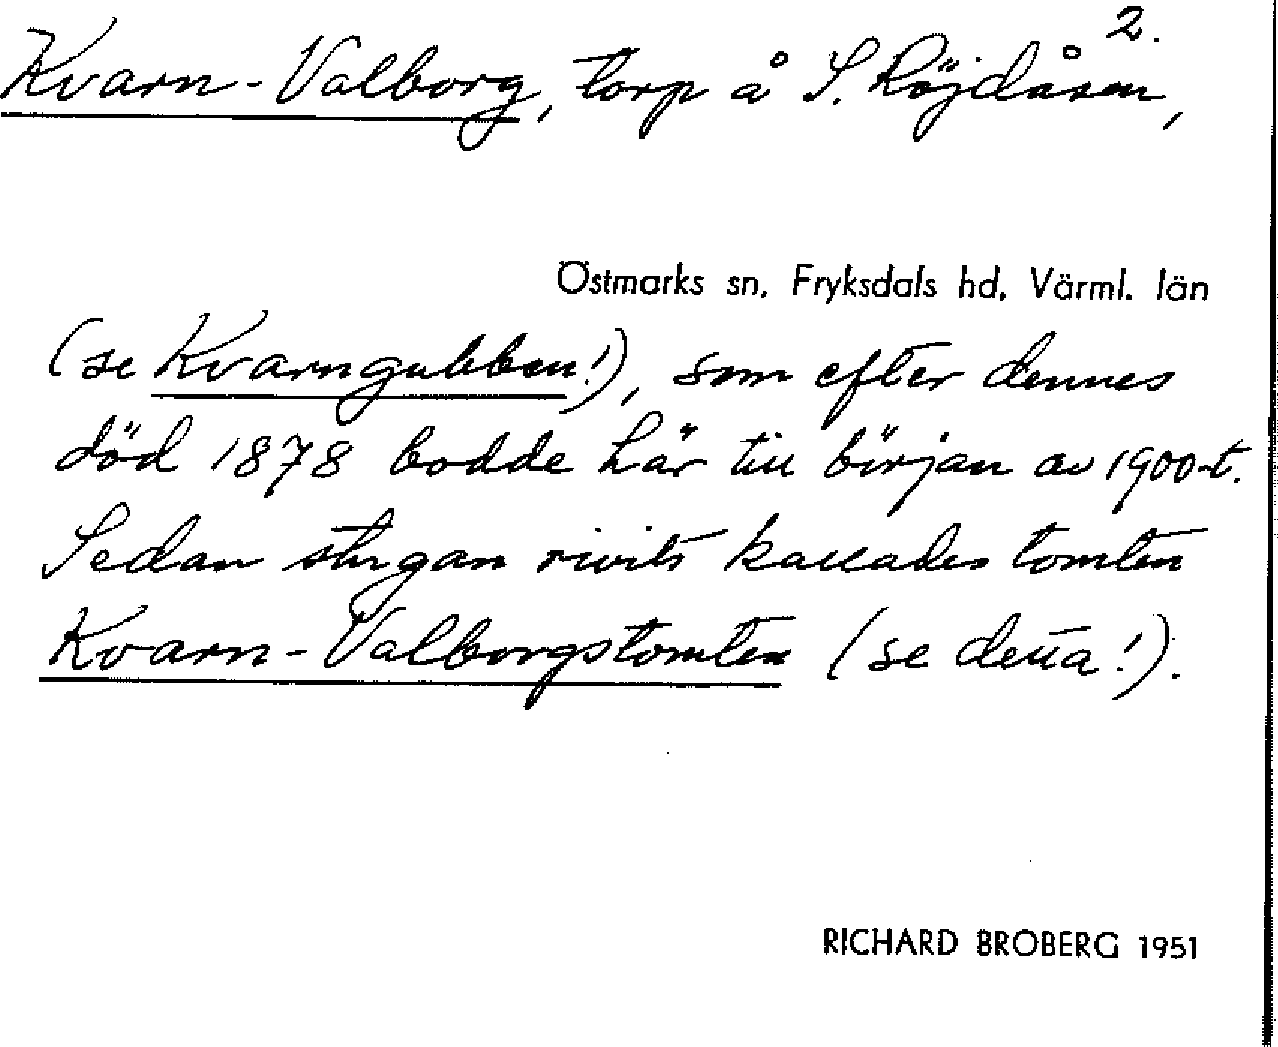 2.
Kvarn-Valborg, torp å S. Röjdåsen,
Östmarks sn, Fryksdals hd, Värml. län
(se Kvarngubben!), som efter dennes
död 1878 bodde här till början av 1900-t.
Sedan stugan rivits kallades tomten
Kvarn-Valborgstomten (se detta!).
RICHARD BROBERG 1951